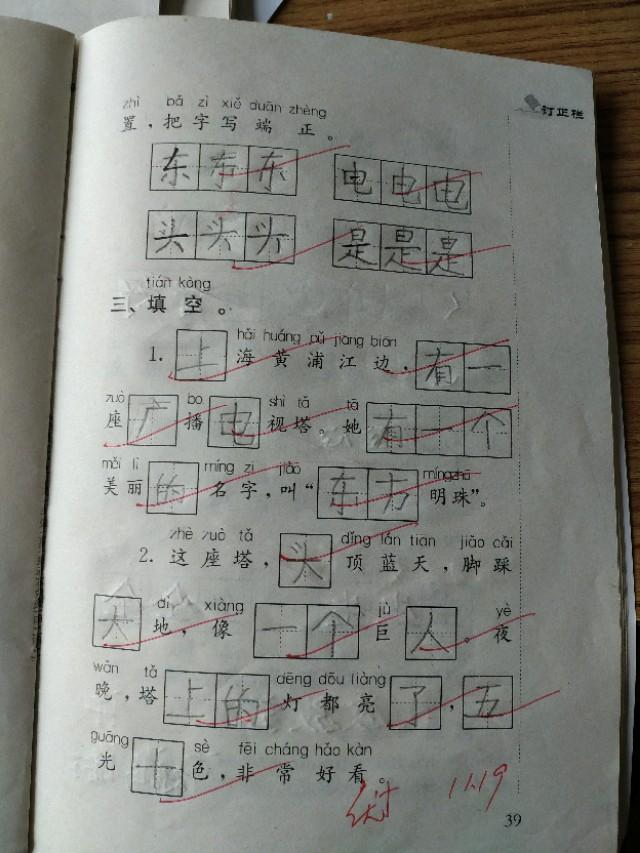 zhì bǎ zì xiě duān zhèng
置，把字写端正。
订正栏
东东东 电电电
头头头 是是是
tián kòng
三、填空。
hǎi huáng pǔ jiāng biān
1. 上海黄浦江边，有一
zuò bō shì tǎ tā
座广播电视塔。她有一个
měi lì míng zi jiào míngzhū
美丽的名字，叫“东方明珠”。
zhè zuò tǎ dǐng lán tiān jiǎo cǎi
2. 这座塔，头顶蓝天，脚踩
dì xiàng jù yè
大地，像一个巨人。夜
wǎn tǎ dēng dōu liàng
晚，塔上的灯都亮了，五
guāng sè fēi cháng hǎo kàn
光十色，非常好看。
优 11.19
39